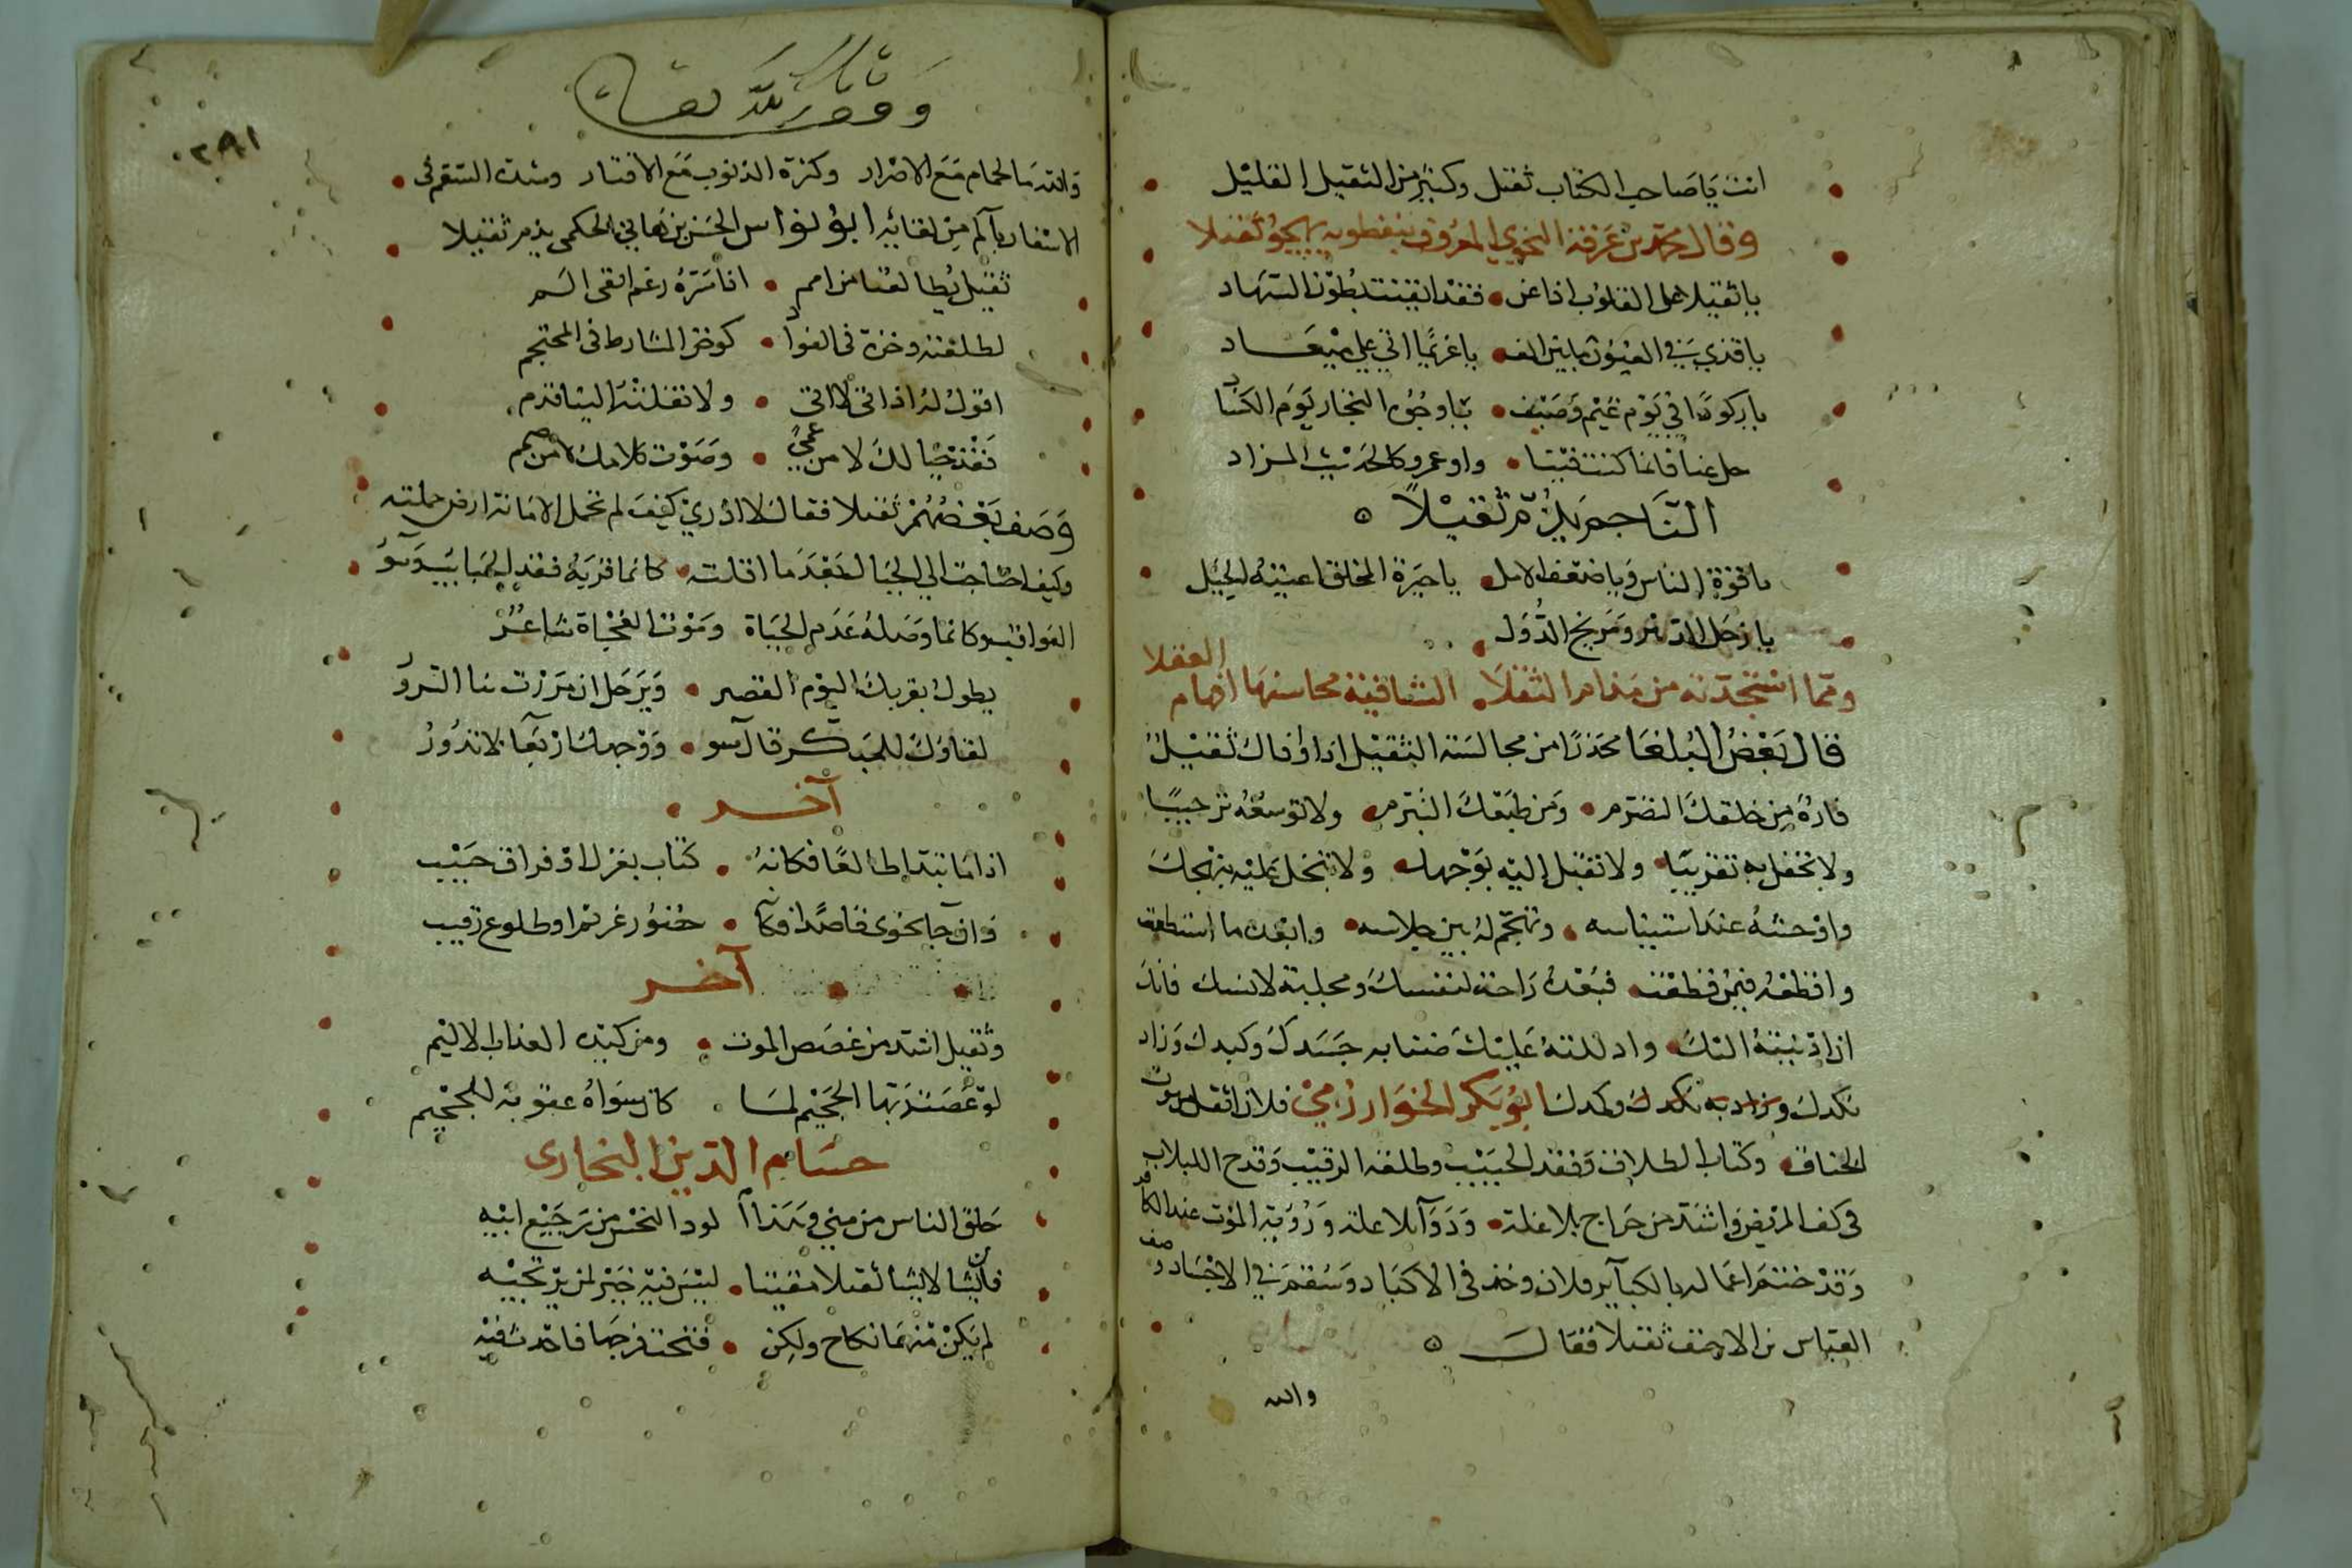 انت يا صاحب الكتاب ثقيل وكثير من الثقيل القليل
وقال محمد بن عرفة النحوي المعروف بنفطويه يهجو ثقيلا
يا ثقيلا على القلوب اذا عن فقد ايقنت بطول السهاد
يا قذى في العيون يا بين الف يا غريما اتى على ميعاد
يا ركودا في يوم غيم وصيف يا وجوه التجار يوم الكساد
خل عنا فانما كنت فينا واو عمرو كالحديث المزاد
الناجم يذم ثقيلا
يا قوة الناس ويا ضعف الامل يا حيرة المخلق اعيته الحيل
يا زحل الدهر ومريخ الدول
ومما استجدته من مذام الثقلا الشافية محاسنها افهام العقلا
قال بعض البلغا محذرا من مجالسة الثقيل اذا وافاك ثقيل
فاره من خلقك التضرم ومن طبقك التبرم ولا توسعه ترحيبا
ولا تحفل به تقريبا ولا تقبل اليه بوجهك ولا تبخل عليه بنهجك
واوحشه عند استيناسه وتهجم له بين جلاسه وابعد ما استطعت
واقطعه فيمن قطعت فبعده راحة لنفسك ومجلبة لانسك فانك
ان ادنيته اليك وادللته عليك ضنا به جسدك وكبدك وزاد
نكدك وزاد به نكدك وكمدك ابو بكر الخوارزمي فلان اثقل من موت
الخناق وكتاب الطلاق وفقد الحبيب وطلعة الرقيب وقدح اللبلاب
في كف المريض واشد من خراج بلا غلة ودوآ بلا علة ورؤية الموت عند الكافر
وقد ختم اعماله بالكبآير فلان وخز في الاكباد وسقم في الاجساد وصف
العباس بن الاحنف ثقيلا فقال
والله
وقف لله تعالى
٢٩١
والله ما الحمام مع الاصرار وكثرة الذنوب مع الاقتار وشدة السقم في
الاسفار بآلم من لقائه ابو نواس الحسن بن هاني الحكمي يذم ثقيلا
ثقيل يطالعنا من امم اذا سره رغم انفي الم
لطلعته وخزة في الفوآد كوخز المشارط في المحتجم
اقول له اذ اتى لا اتى ولا نقلته الينا قدم
فقدت خيالك لا من عمى وصوت كلامك لا من صمم
وصف بعضهم ثقيلا فقال لا ادري كيف لم تحمل الامانة ارض حملته
وكيف احتاجت الى الجبال بعد ما اقلته كانما قربه فقد الحبايب وسو
العواقب وكانما وصله عدم الحياة وموت الفجاة شاعر
يطول بقربك اليوم القصير ويرحل ان مررت بنا السرور
لقاؤك للمبكر فال سو ووجهك اربعا لا تدور
آخر
اذا ما تبدا طالعا فكانه كتاب بعزل او فراق حبيب
وان جا نحوي قاصدا فكأنما حضور غريم او طلوع رقيب
آخر
وثقيل اشد من غصص الموت ومن كبده العذاب الاليم
لو عصت ربها الجحيم لما كان سواه عقوبة للجحيم
حسام الدين البخارى
خلق الناس من مني وهذا لو دا النحس من رجيع ابيه
فانشا لابشا ثقيلا مقيتا ليس فيه خير لمن يرتجيه
لم يكن منهما نكاح ولكن فتحت فرجها فاحدث فيه